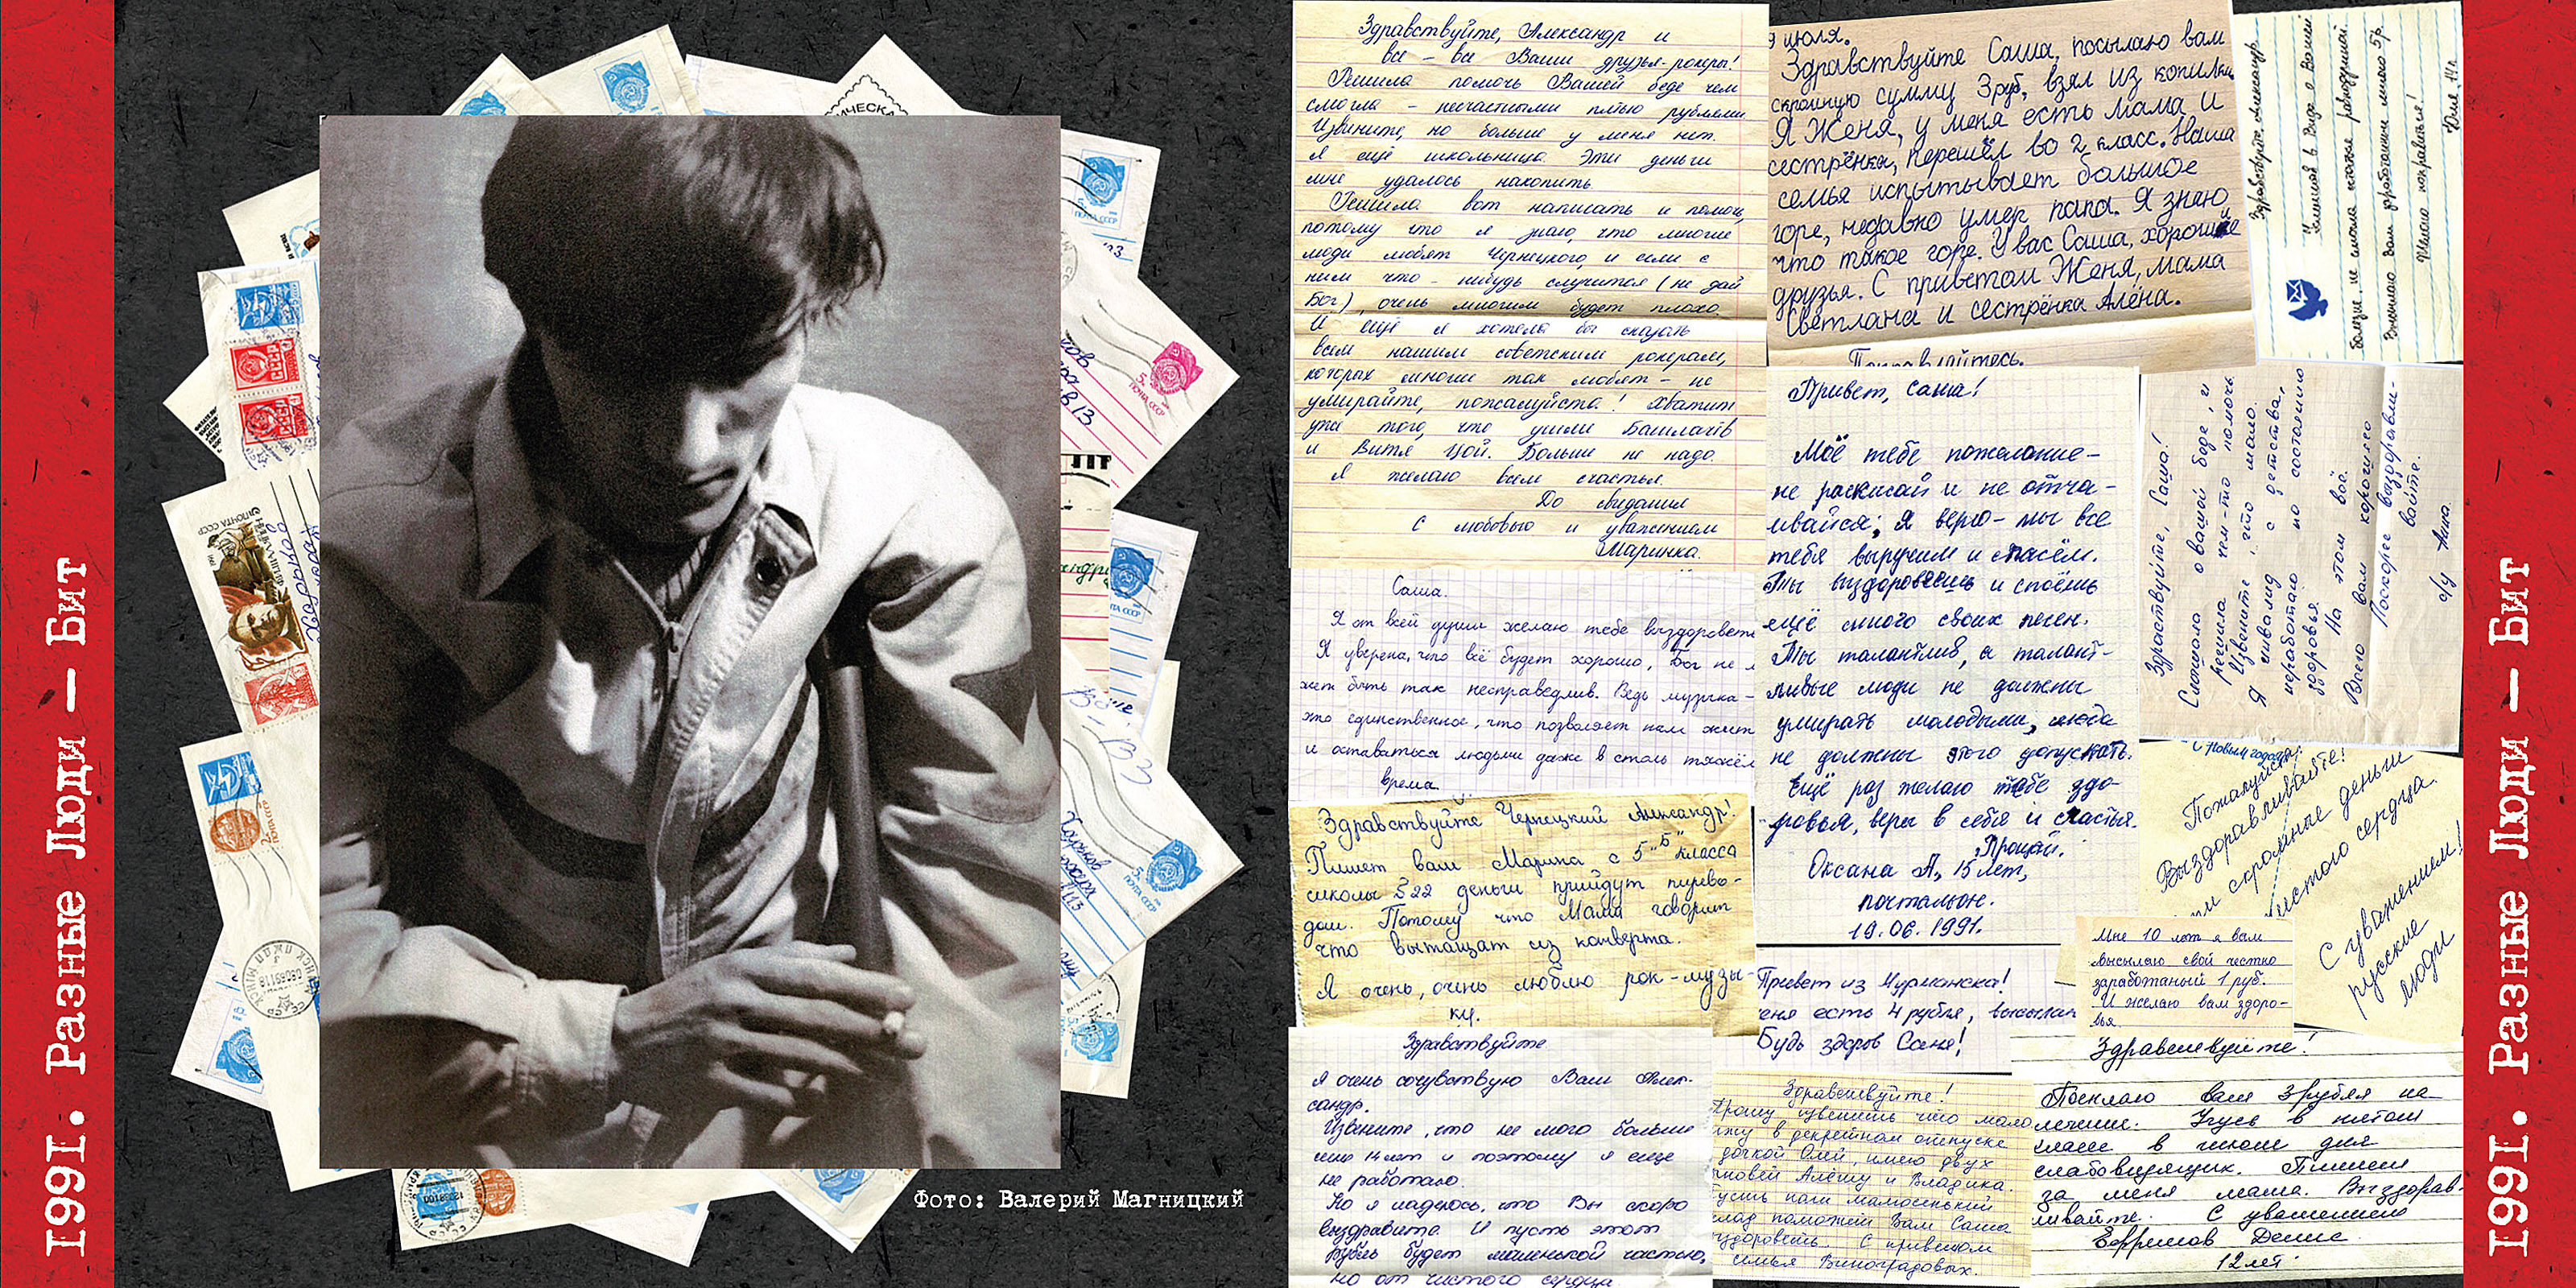 1991. Разные Люди — Бит
Фото: Валерий Магницкий
Здравствуйте, Александр и
все - все Ваши друзья-рокеры!
Решила помочь Вашей беде чем
смогла - несчастными пятью рублями
Извините, но больше у меня нет.
Я ещё школьница. Эти деньги
мне удалось накопить.
Решила вот написать и помочь,
потому что я знаю, что многие
люди любят Чернецкого, и если с
ним что-нибудь случится (не дай
Бог), очень многим будет плохо.
И ещё я хотела бы сказать
всем нашим советским рокерам,
которых многие так любят - не
умирайте, пожалуйста! Хватит
уже того, что ушли Башлачёв
и Витя Цой. Больше не надо.
Я желаю всем счастья.
До свидания
С любовью и уважением
Маринка.
Саша.
Я от всей души желаю тебе выздороветь
Я уверена, что всё будет хорошо, Бог не
жет быть так несправедлив. Ведь музыка -
это единственное, что позволяет нам жить
и оставаться людьми даже в столь тяжёл
время
Здравствуйте Чернецкий Александр!
Пишет вам Марина с 5 "Б" класса
школы №22 деньги прийдут перево-
дом. Потому что Мама говорит
что вытащат из конверта.
Я очень, очень люблю рок-музы-
ку.
Здравствуйте
Я очень сочувствую Вам Алек-
сандр.
Извините, что не могу больше
мне 14 лет и поэтому я еще
не работаю.
Но я надеюсь, что Вы скоро
выздравите. И пусть этот
рубль будет маленькой частью,
но от чистого сердца
9 июля.
Здравствуйте Саша, посылаю вам
скромную сумму 3 руб, взял из копилки
Я Женя, у меня есть мама и
сестрёнка, перешёл во 2 класс. Наша
семья испытывает большое
горе, недавно умер папа. Я знаю,
что такое горе. У вас Саша, хорошие
друзья. С приветом Женя, мама
Светлана и сестрёнка Алёна.
Поправляйтесь.
Привет, Саша!
Моё тебе пожелание -
не раскисай и не отча-
ивайся; я верю - мы все
тебя выручим и спасём.
Ты выздоровеешь и споёшь
ещё много своих песен.
Ты талантлив, а талант-
ливые люди не должны
умирать молодыми, люди
не должны этого допускать.
Ещё раз желаю тебе здо-
ровья, веры в себя и счастья.
Прощай.
Оксана А, 15 лет,
почтальон.
19.06.1991.
Привет из Мурманска!
еня есть 4 рубля, высылаю
Будь здоров Саня!
Здравствуйте!
Прошу извенить что мало
ижу в декретном отпуске
дочкой Олей, имею двух
новей Алёшу и Владика.
усть наш малюсенький
клад поможет Вам Саша
здороветь. С приветом
семья Виноградовых.
Здравствуйте, Александр
Услышав в Виде о Вашей
болезни не смогла остаться равнодушной.
Высылаю вам заработанные мною 5р.
Желаю поправиться!
Юля, 14л.
Здраствуйте, Саша!
Слышала о вашей беде, и
решила чем-то помочь
Извените, что мало.
Я инвалид с детства,
неработаю по состоянию
здоровья.
На этом всё.
Всего вам хорошего
Поскорее выздоравли-
вайте.
с/у Анна.
С Новым годом!
Пожалуйста!
Выздоравливайте!
скромные деньги
чистого сердца.
С уважением!
русские
люди
Мне 10 лет я вам
высылаю свой честно
заработаный 1 руб.
И желаю вам здоро-
вья.
Здравствуйте!
Посылаю вам 3 рубля на
лечение. Учусь в пятом
классе в школе для
слабовидящих. Пишет
за меня мама. Выздорав-
ливайте. С уважением
Ефремов Денис
12 лет.
1991. Разные Люди — Бит